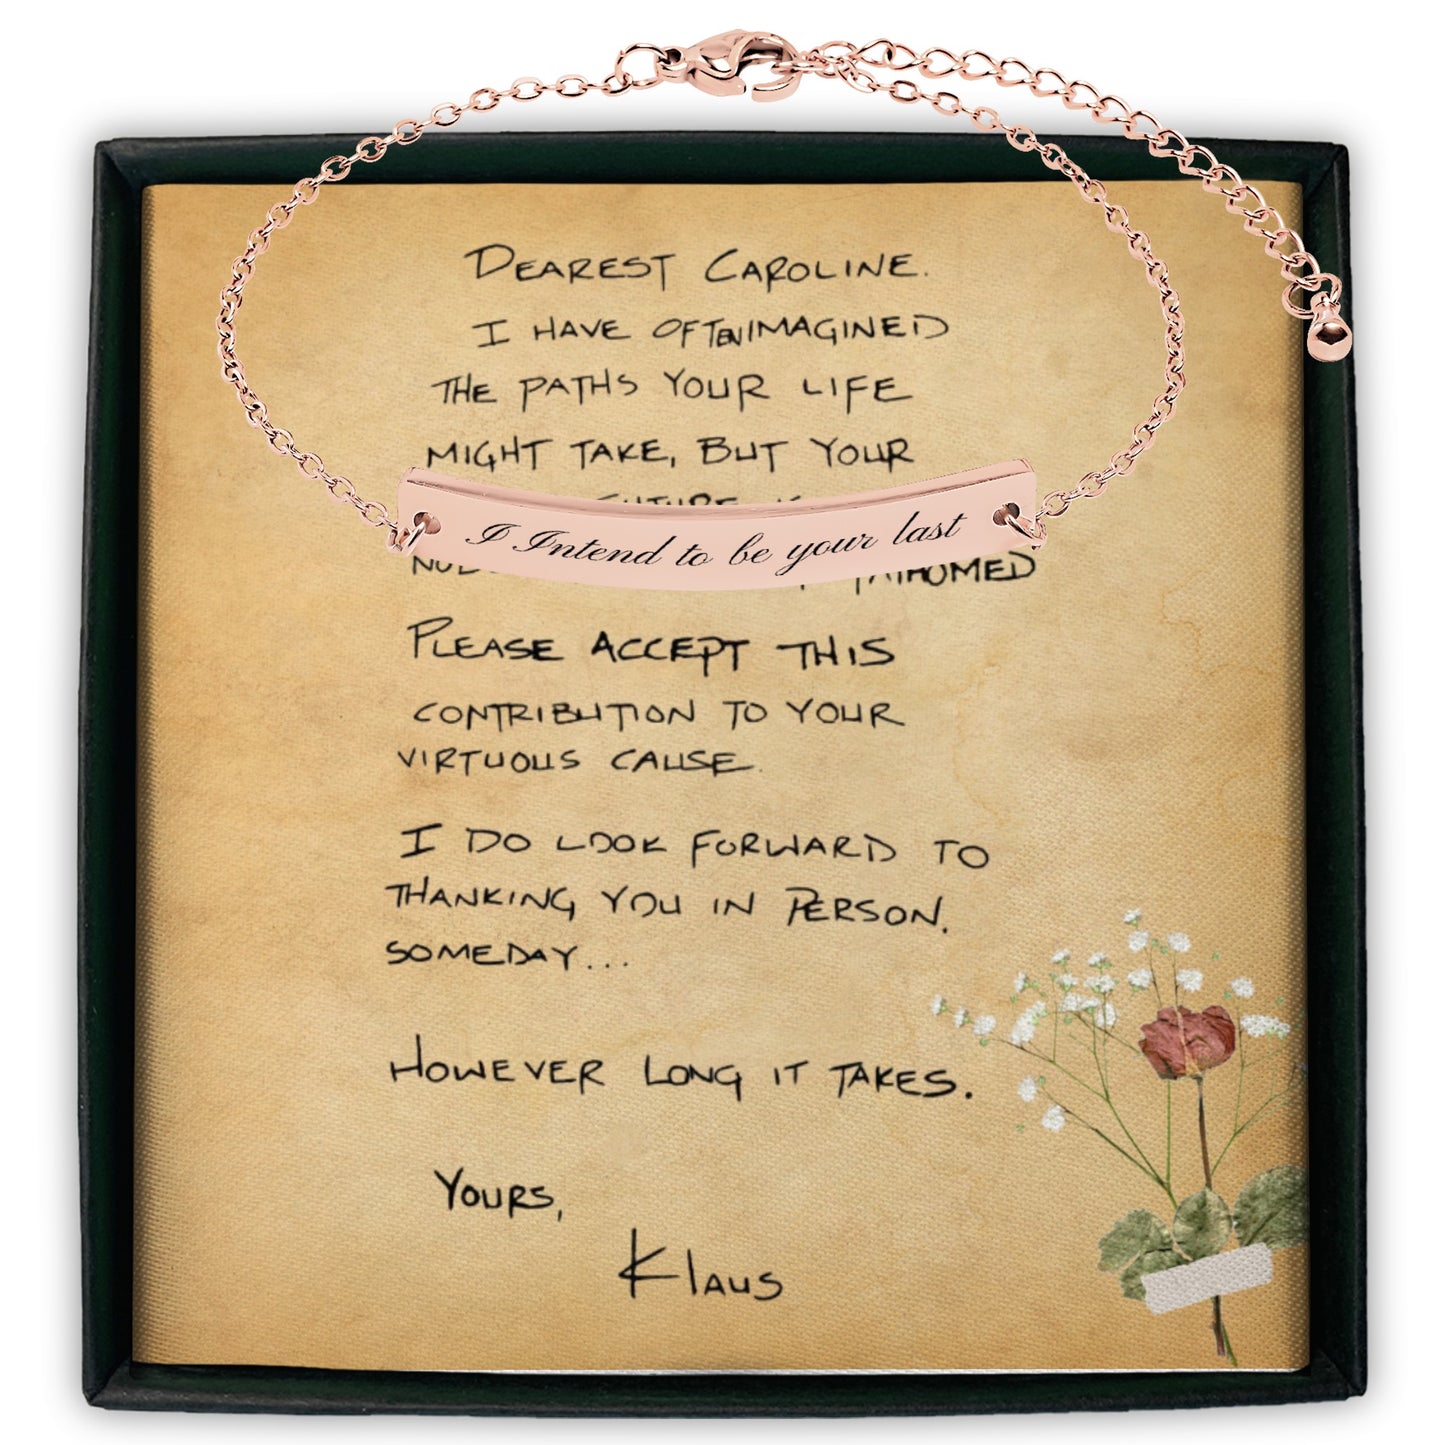 DEAREST CAROLINE.
I HAVE OFTEN IMAGINED
THE PATHS YOUR LIFE
MIGHT TAKE, BUT YOUR
FUTURE
I Intend to be your last
FATHOMED
PLEASE ACCEPT THIS
CONTRIBUTION TO YOUR
VIRTUOUS CAUSE.
I DO LOOK FORWARD TO
THANKING YOU IN PERSON.
SOMEDAY...
HOWEVER LONG IT TAKES.
YOURS,
KLAUS